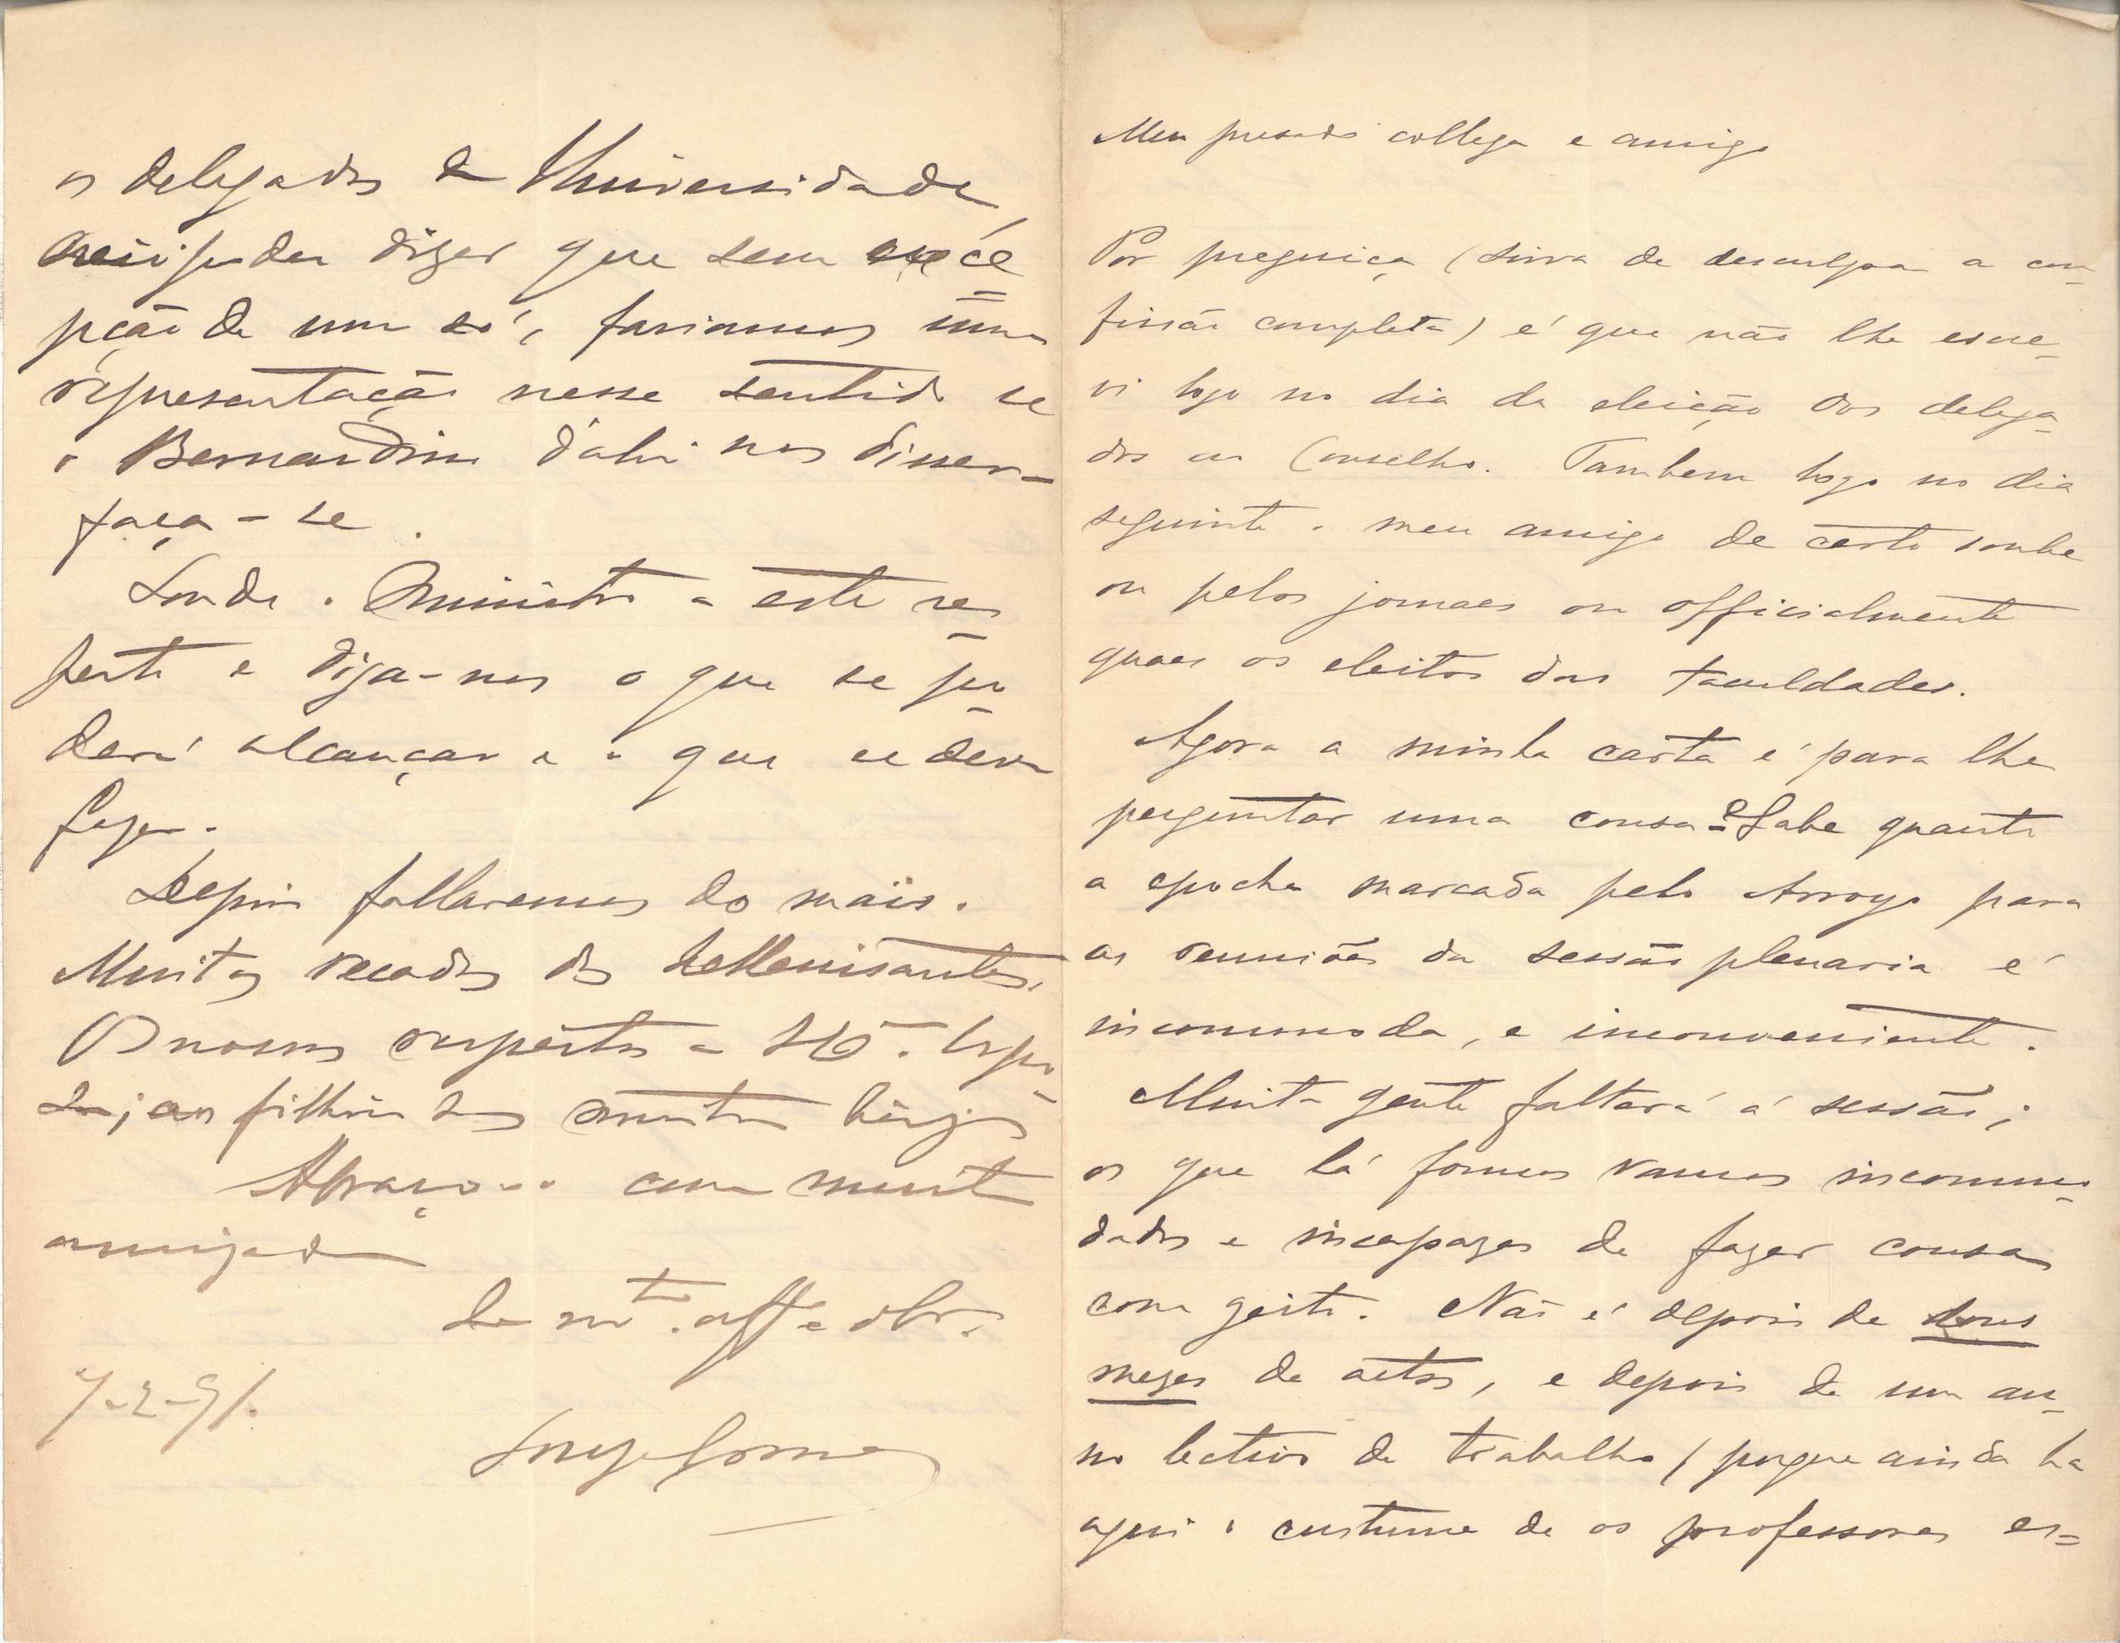 Meu presado collega e amigo
Por preguiça (sirva de desculpa a con-
fissão completa) é que não lhe escre-
vi logo no dia da eleição dos delega-
dos ao Conselho. Tambem logo no dia
seguinte o meu amigo de certo soube
ou pelos jornaes ou officialmente
quaes os eleitos das faculdades.
Agora a minha carta é para lhe
perguntar uma cousa: Sabe quanto
a epocha marcada pelo Arroyo para
as reuniões da sessão plenaria é
incommoda, e inconveniente.
Muita gente faltará á sessão;
os que lá formos vamos incommo-
dados e incapazes de fazer cousa
com geito. Não é depois de dous
mezes de actos, e depois de um an-
no lectivo de trabalho (porque ainda ha
aqui o custume de os professores es-
os delegados da Universidade,
dizer que sem exce-
pção de um só, fariamos uma
representação nesse sentido se
o Bernardino d'ahi nos disser-
faça-se.
Sonde o Ministro a este res-
peito e diga-nos o que se po-
derá alcançar e o que se deva
fazer.
Depois fallaremos do mais.
Muitos recados dos hellenisantes.
Os nossos respeitos a S. Ex. Espo-
sa; aos filhinhos muitos beijos
Abraço-o com muita
amizade
De mto. aff e obr.
7-2-91.
Luiz Gomes